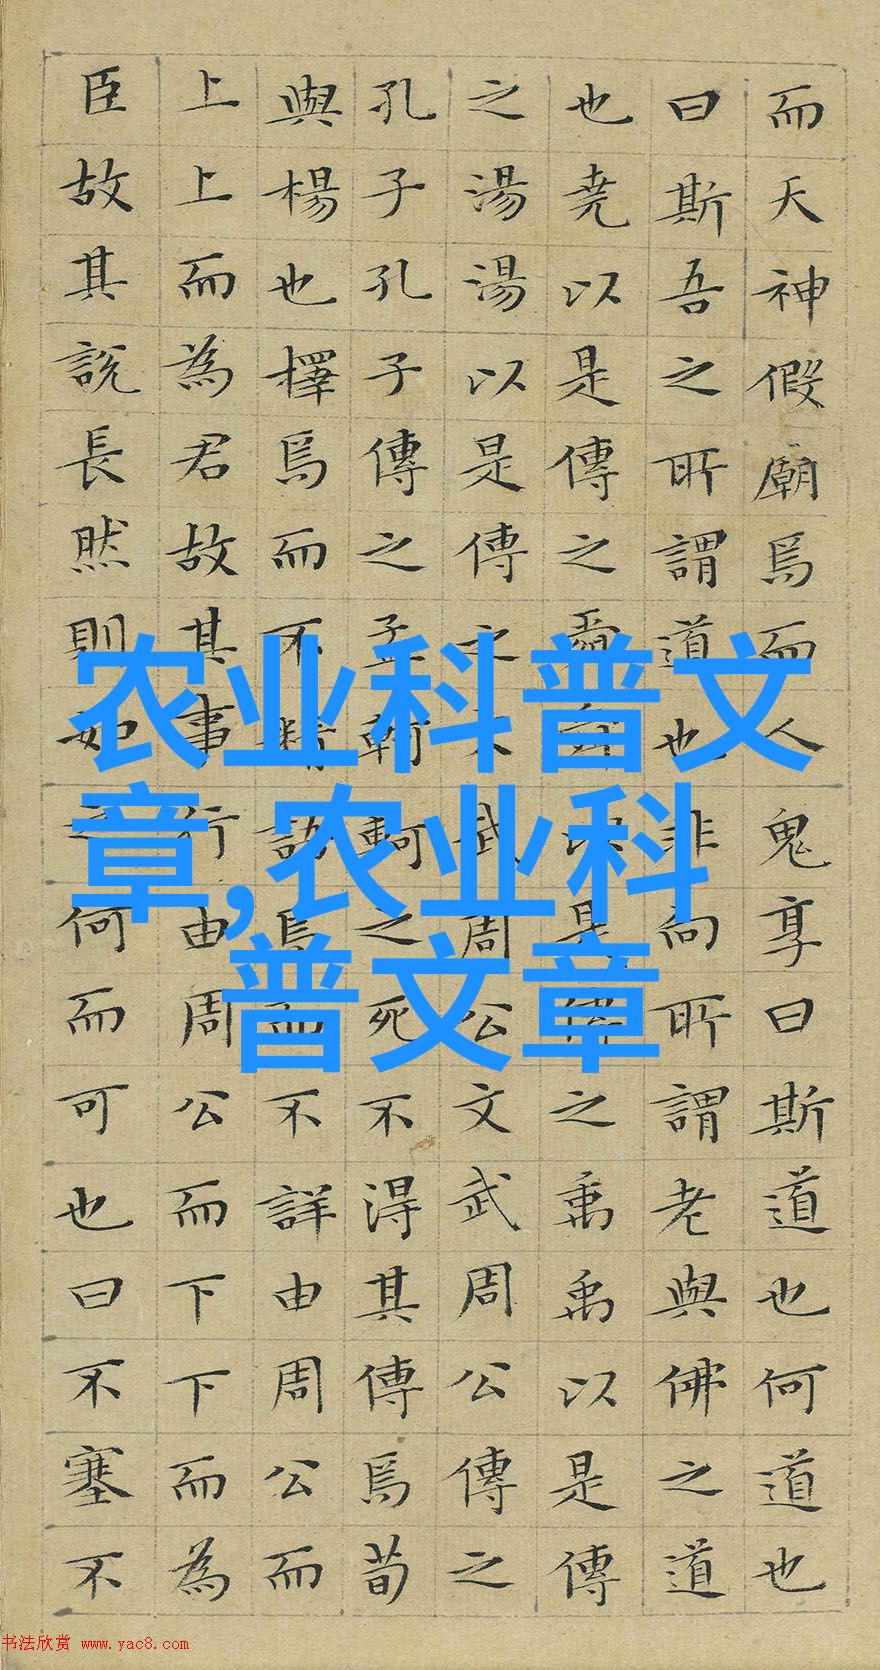 而天神假廟焉而人鬼享曰斯道也何道也
曰斯吾之所謂道也非向所謂老與佛之道
也堯以是傳之舜舜以是傳之禹禹以是傳
之湯湯以是傳之文武周公文武周公傳之
孔子孔子傳之孟軻軻之死不得其傳焉荀
與楊也擇焉而不精語焉而不詳由周公而
上上而為君故其事行由周公而下下而為
臣故其說長然則如之何而可也曰不塞不
农业科普文
章,农业科
普文章
书法欣赏 www.yac8.com